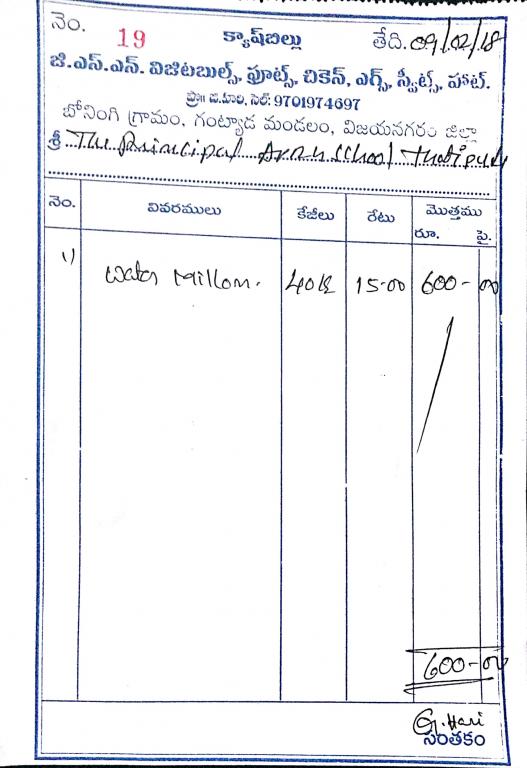 నెం. 19 క్యాష్‌బిల్లు తేది. 09/02/18
జి.ఎస్.ఎన్. విజిటబుల్స్, ఫ్రూట్స్, చికెన్, ఎగ్స్, స్వీట్స్, హాట్.
ప్రొ॥ జి.హరి, సెల్: 9701974697
బోనంగి గ్రామం, గంట్యాడ మండలం, విజయనగరం జిల్లా
శ్రీ The Principal School
నెం. వివరములు కేజీలు రేటు మొత్తము
రూ. పై.
1) Water Millom. 40k 15-00 600-00
600-00
G. Hari
సంతకం